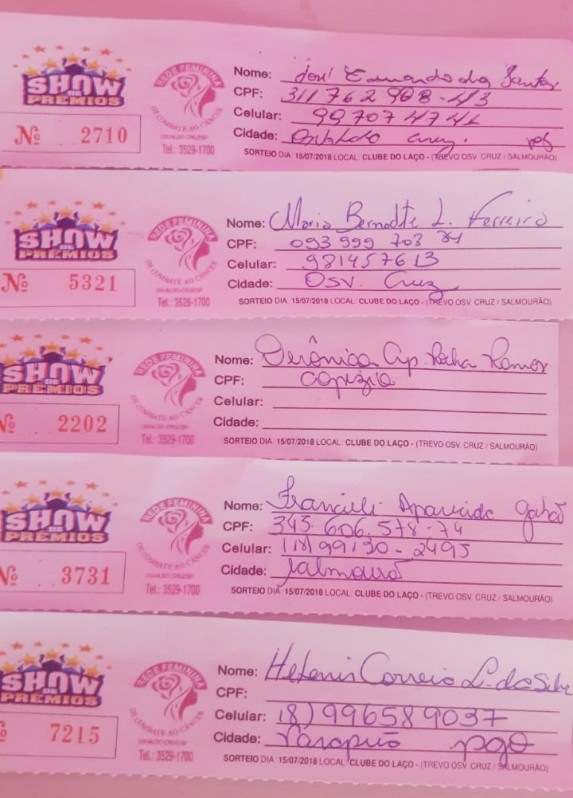 SHOW DE PRÊMIOS
Nº 2710
REDE FEMININA
DE COMBATE AO CÂNCER
Tel.: 3529-1700
Nome: José Eduardo dos Santos
CPF: 311 762 908-43
Celular: 99707 4744
Cidade: Osvaldo Cruz.
SORTEIO DIA 15/07/2018 LOCAL: CLUBE DO LAÇO - (TREVO OSV. CRUZ / SALMOURÃO)
SHOW DE PRÊMIOS
Nº 5321
REDE FEMININA
DE COMBATE AO CÂNCER
Tel.: 3529-1700
Nome: Maria Bernadte L. Ferreira
CPF: 093 999 703
Celular: 981457613
Cidade: Osv. Cruz
SORTEIO DIA 15/07/2018 LOCAL: CLUBE DO LAÇO - (TREVO OSV. CRUZ / SALMOURÃO)
SHOW DE PREMIOS
Nº 2202
REDE FEMININA
DE COMBATE AO CÂNCER
Tel.: 3529-1700
Nome: Verônica Ap. Rocha Ramos
CPF:
Celular:
Cidade:
SORTEIO DIA 15/07/2018 LOCAL: CLUBE DO LAÇO - (TREVO OSV. CRUZ / SALMOURÃO)
SHOW DE PRÊMIOS
Nº 3731
REDE FEMININA
DE COMBATE AO CÂNCER
Tel.: 3529-1700
Nome: Francieli Aparecida
CPF: 345.606.578-74
Celular: (18) 99130-2495
Cidade: Salmourão
SORTEIO DIA 15/07/2018 LOCAL: CLUBE DO LAÇO - (TREVO OSV. CRUZ / SALMOURÃO)
SHOW DE PRÊMIOS
º 7215
REDE FEMININA
DE COMBATE AO CÂNCER
Tel.: 3529-1700
Nome: Helenis Correio L. da Silva
CPF:
Celular: 18) 996589037
Cidade: pgo
SORTEIO DIA 15/07/2018 LOCAL: CLUBE DO LAÇO - (TREVO OSV. CRUZ / SALMOURÃO)